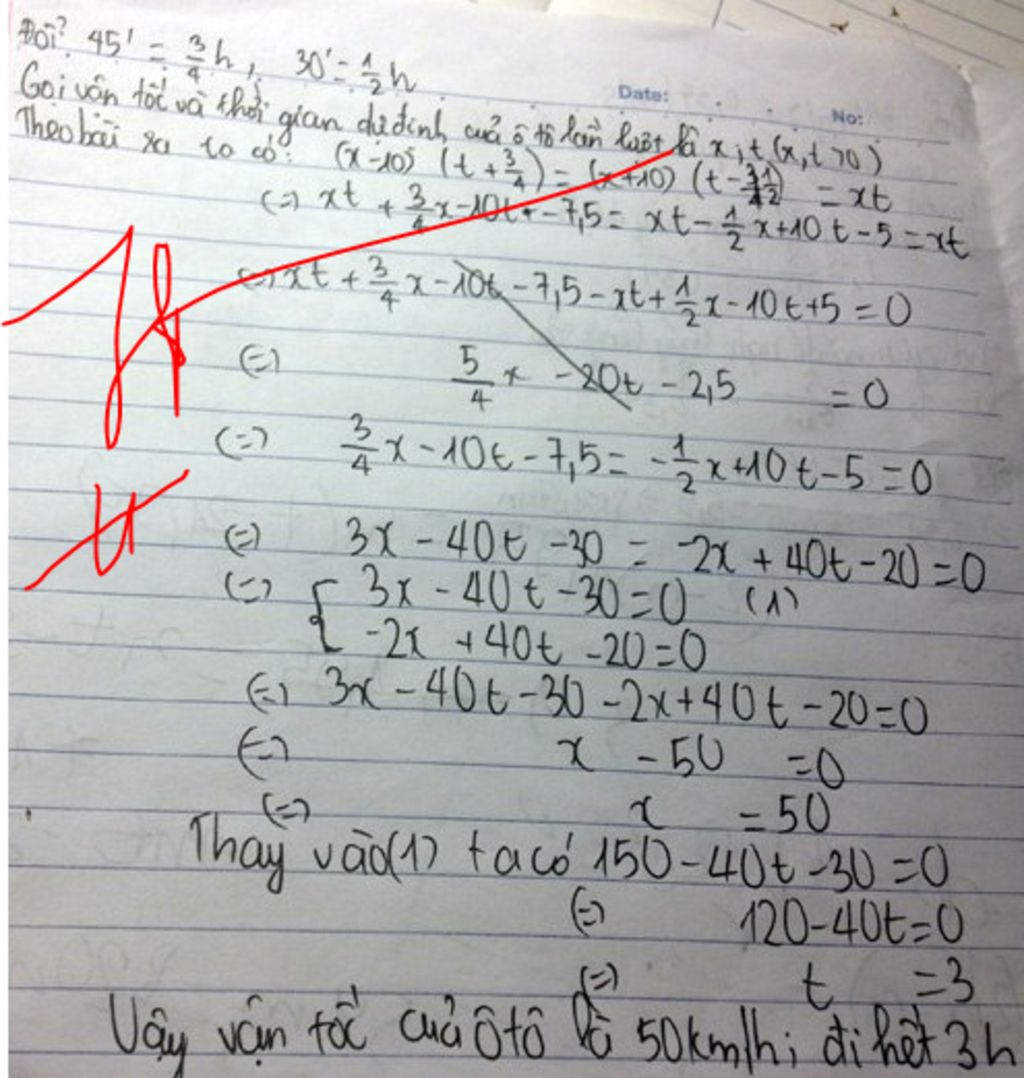 Đổi? 45' = 3/4 h, 30' = 1/2 h
Date:
No:
Gọi vận tốc và thời gian dự định của ô tô lần lượt là x, t (x, t > 0)
Theo bài ra ta có: (x-10) (t + 3/4) = (x+10) (t - 1/2) = xt
(=) xt + 3/4 x - 10t - 7,5 = xt - 1/2 x + 10t - 5 = xt
(=) xt + 3/4 x - 10t - 7,5 - xt + 1/2 x - 10t + 5 = 0
(=) 5/4 x - 20t - 2,5 = 0
(=) 3/4 x - 10t - 7,5 = - 1/2 x + 10t - 5 = 0
(=) 3x - 40t - 30 = -2x + 40t - 20 = 0
(=) { 3x - 40t - 30 = 0 (1)
-2x + 40t - 20 = 0
(=) 3x - 40t - 30 - 2x + 40t - 20 = 0
(=) x - 50 = 0
(=) x = 50
Thay vào (1) ta có 150 - 40t - 30 = 0
(=) 120 - 40t = 0
(=) t = 3
Vậy vận tốc của ô tô là 50km/h; đi hết 3h